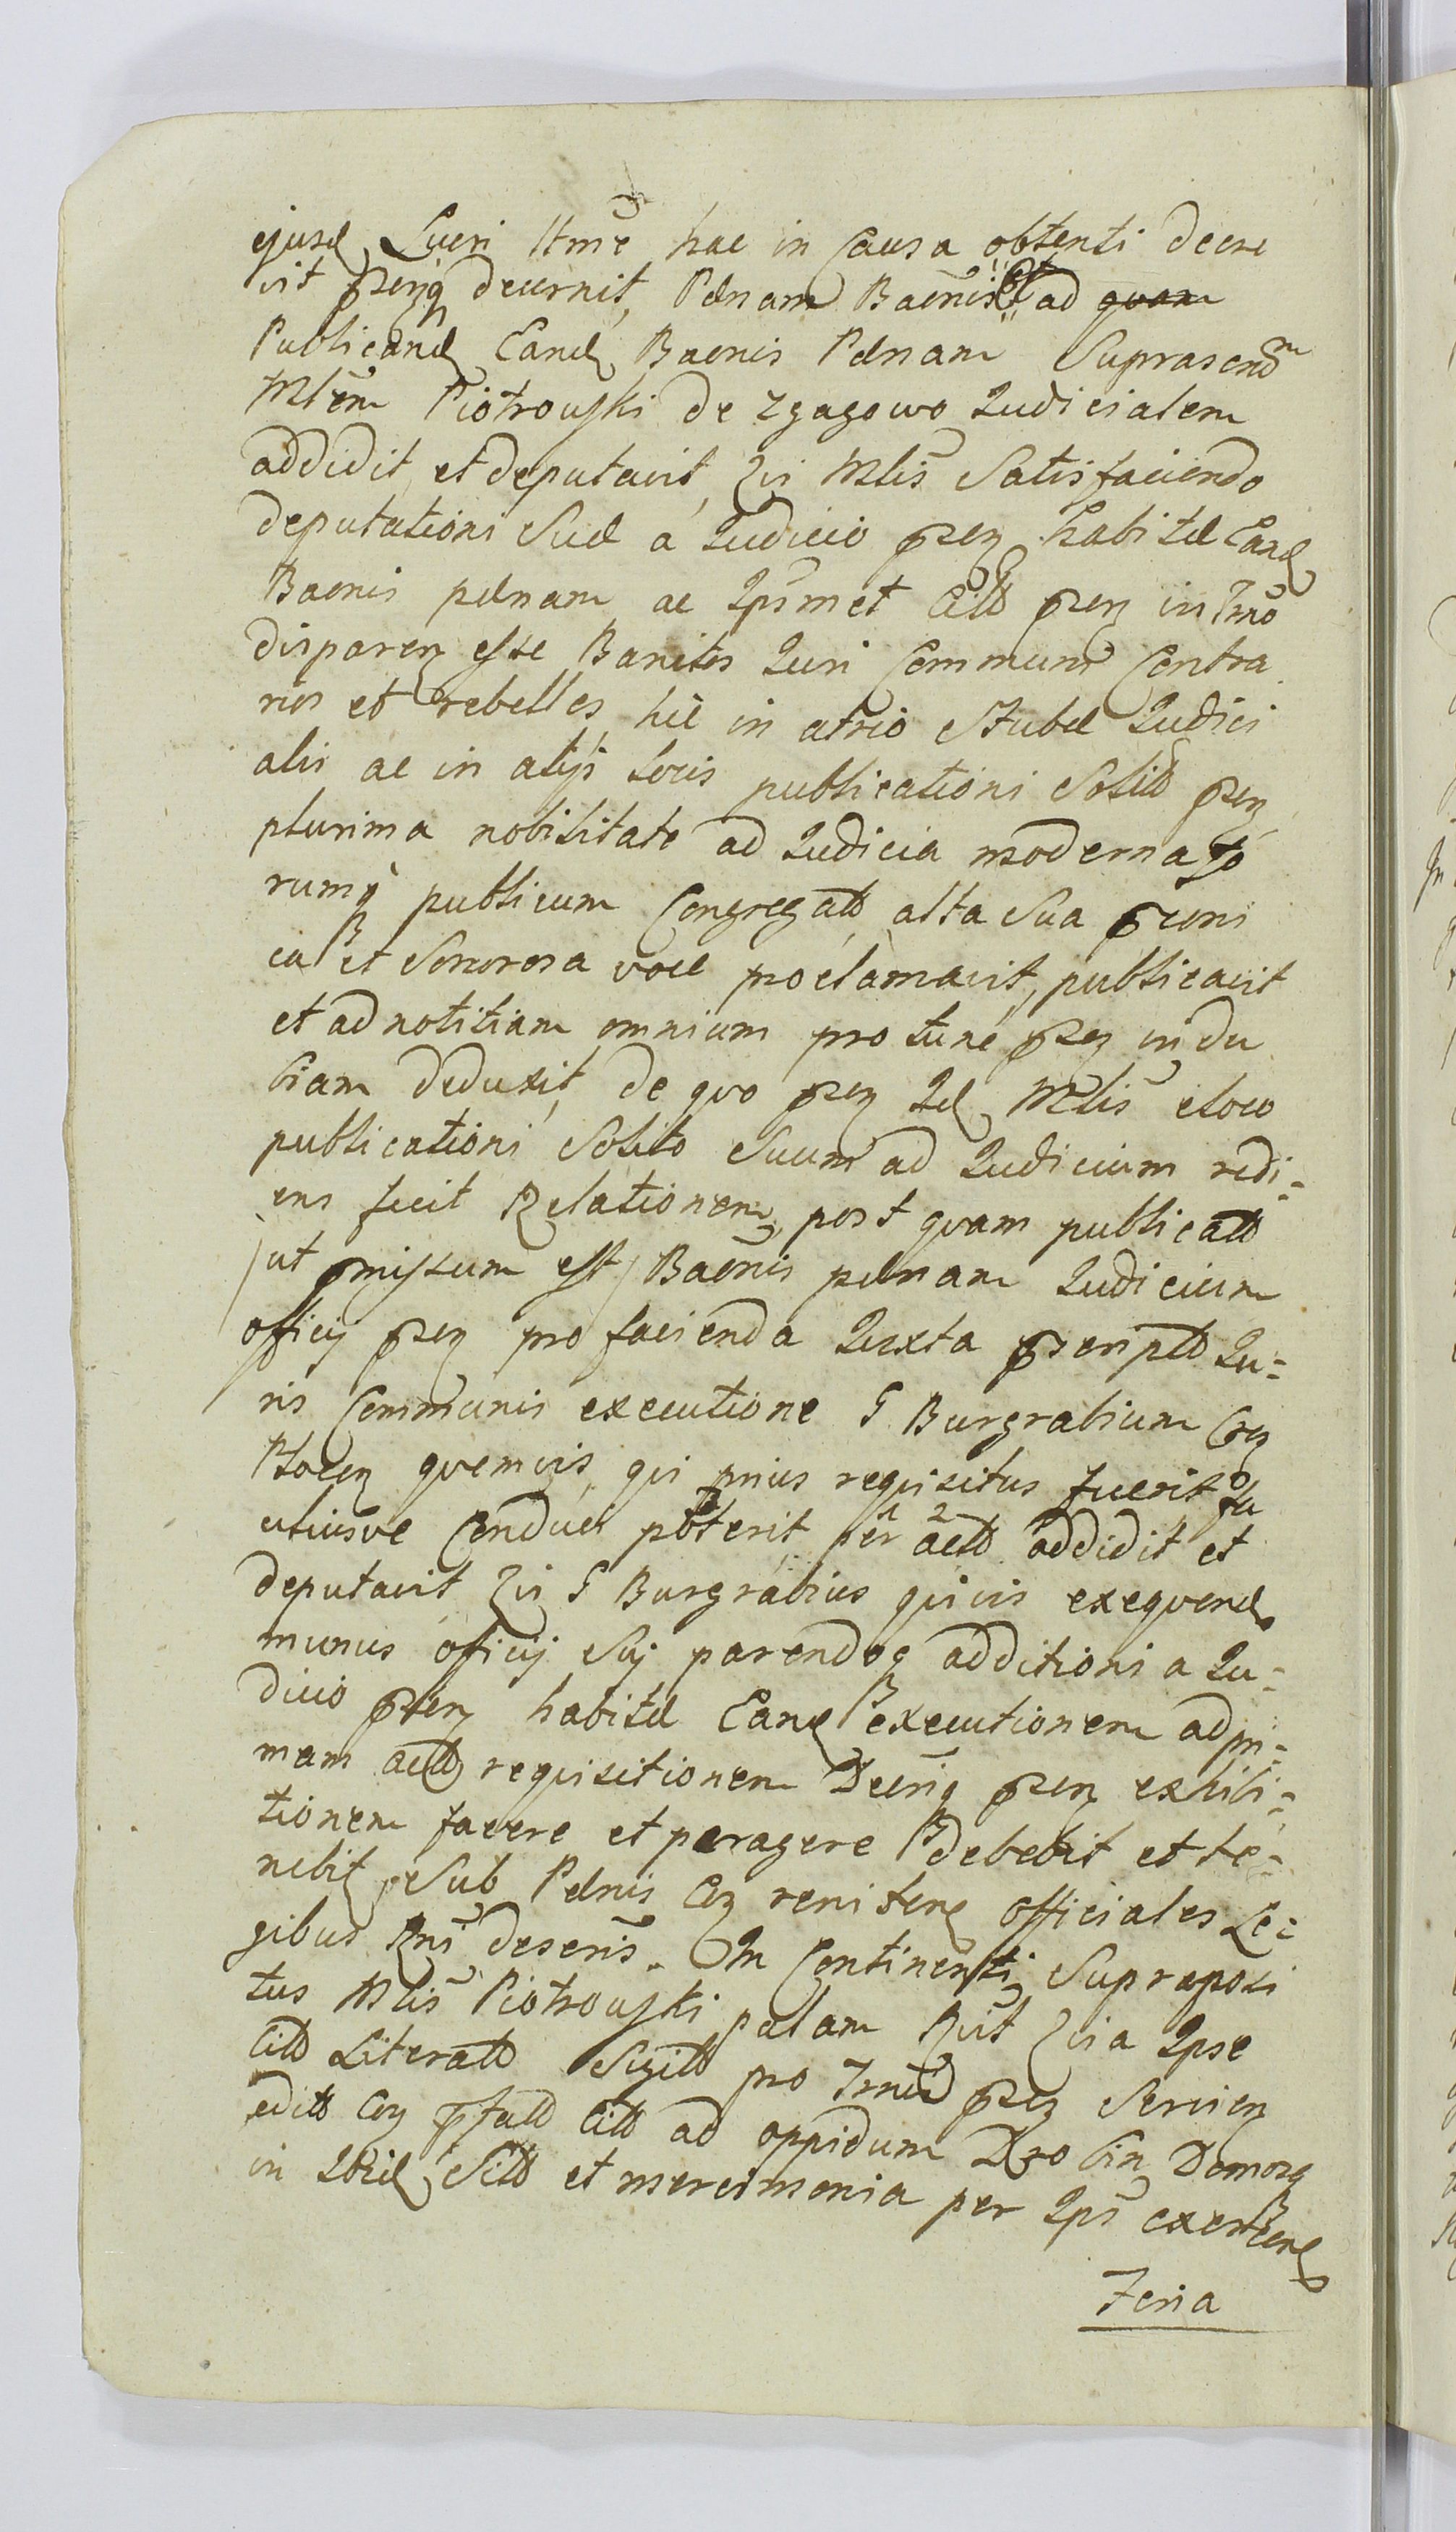 ejusd Lucri Itme hac in Causa obtenti decre
vit psenq decernit, Pœnam Baenis et ad quam
Publicand Eand Baenis Pœnam Suprascrip
Mlem Piotrowski de Zgagowo Judicialem
addidit et deputavit, Qui Mlis Satisfaciendo
deputationi Suæ a Judicio psen habitæ Eand
Baenis pœnam ac Ipsmet Citt psen in Trno
disparen esse Banitos Juri Communi Contra
rios et rebelles, hic in atrio Stubæ Judici
alis ac in alijs locis publicationi Solitt psen
plurima nobilitate ad Judicia moderna fo
rumq publicum Congregatt, alta Sua preni
ca et Sonorosa voce proclamavit, publicavit
et ad notitiam omnium pro tunc psen indu
biam deduxit, de quo psen Id Mlis eloco
publicationi Solito Suum ad Judicium redi=
ens fecit Relationem, post quam publicatt
/ut pmissum est/ Baenis pœnam Judicium
officij psen pro facienda Juxta pscriptt Ju=
ris Communis executione G Burgrabium Crn
Plocen quemvis, qui prius requisitus fuerit fu
utiusve Conduci poterit per actt addidit et
deputavit Qui G Burgrabius quivis exequend
munus officij Sui parendoq additioni a Ju=
dicio psen habitæ Eand executionem ad pri=
mam actt requisitionem Decriq psen exhibi=
tionem facere et peragere debebit et te=
nebit Sub Pœnis Con renitend officiales Le=
gibus Rni descris. In Continenti Supraposi
tus Mlis Piotrowski palam Rvit Quia Ipse
Citt Literatt Sigitt pro Trnud psen Servien
editt Con pfatt Citt ad oppidum Drobin Domosq
in Ibid Sitt et mercimonia per Ips exercend
Feria